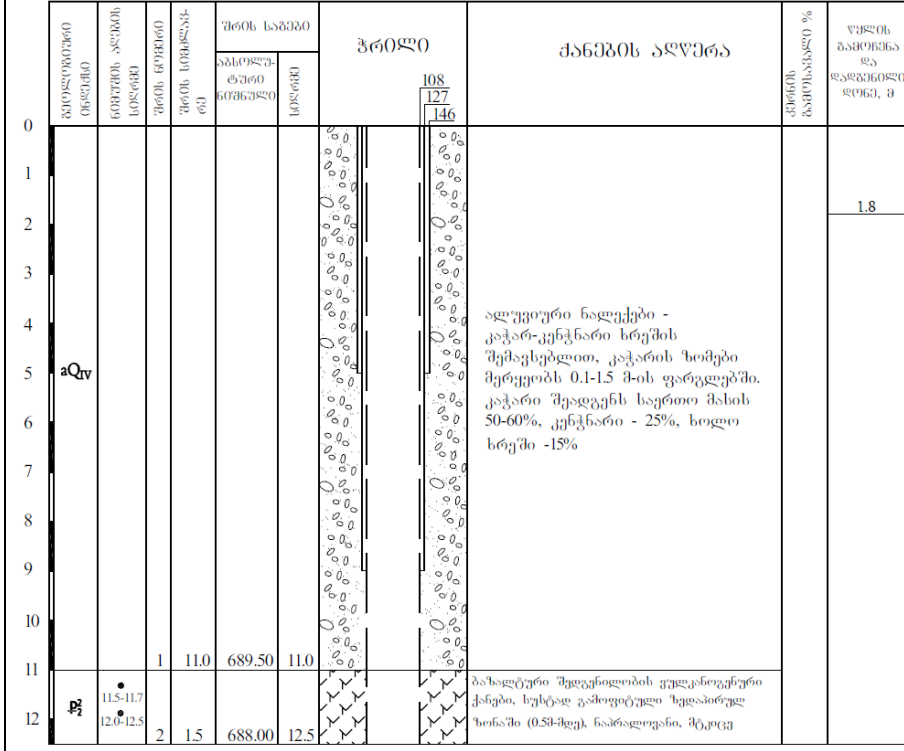 გეოლოგიური
ინდექსი
ნიმუშის აღების
სიღრმე
შრის ნომერი
შრის სიმძლავ-
რე
შრის საგები
აბსოლუ-
ტური
ნიშნული
სიღრმე
ჭრილი
108
127
146
ქანების აღწერა
კერნის
გამოსავალი %
წყლის
გამოჩენა
და
დადგენილი
დონე, მ
0
1
1.8
2
3
ალუვიური ნალექები -
4
კაჭარ-კენჭნარი ხრეშის
შემავსებლით, კაჭარის ზომები
5
aQIV
მერყეობს 0.1-1.5 მ-ის ფარგლებში.
კაჭარი შეადგენს საერთო მასის
6
50-60%, კენჭნარი - 25%, ხოლო
ხრეში -15%
7
8
9
10
1 11.0 689.50 11.0
11
11.5-11.7
12.0-12.5
ბაზალტური შედგენილობის ვულკანოგენური
ქანები, სუსტად გამოფიტული ზედაპირულ
ზონაში (0.5მ-მდე), ნაპრალოვანი, მტკიცე
12
2 1.5 688.00 12.5